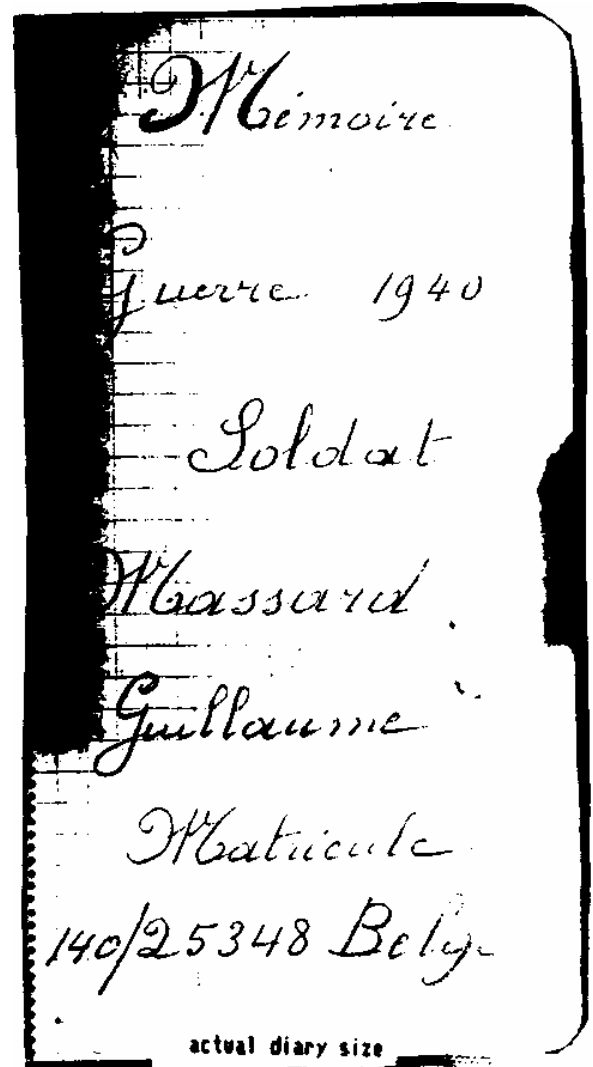 Mémoire
Guerre 1940
Soldat
Massard
Guillaume
Matricule
140/25348 Belge
actual diary size